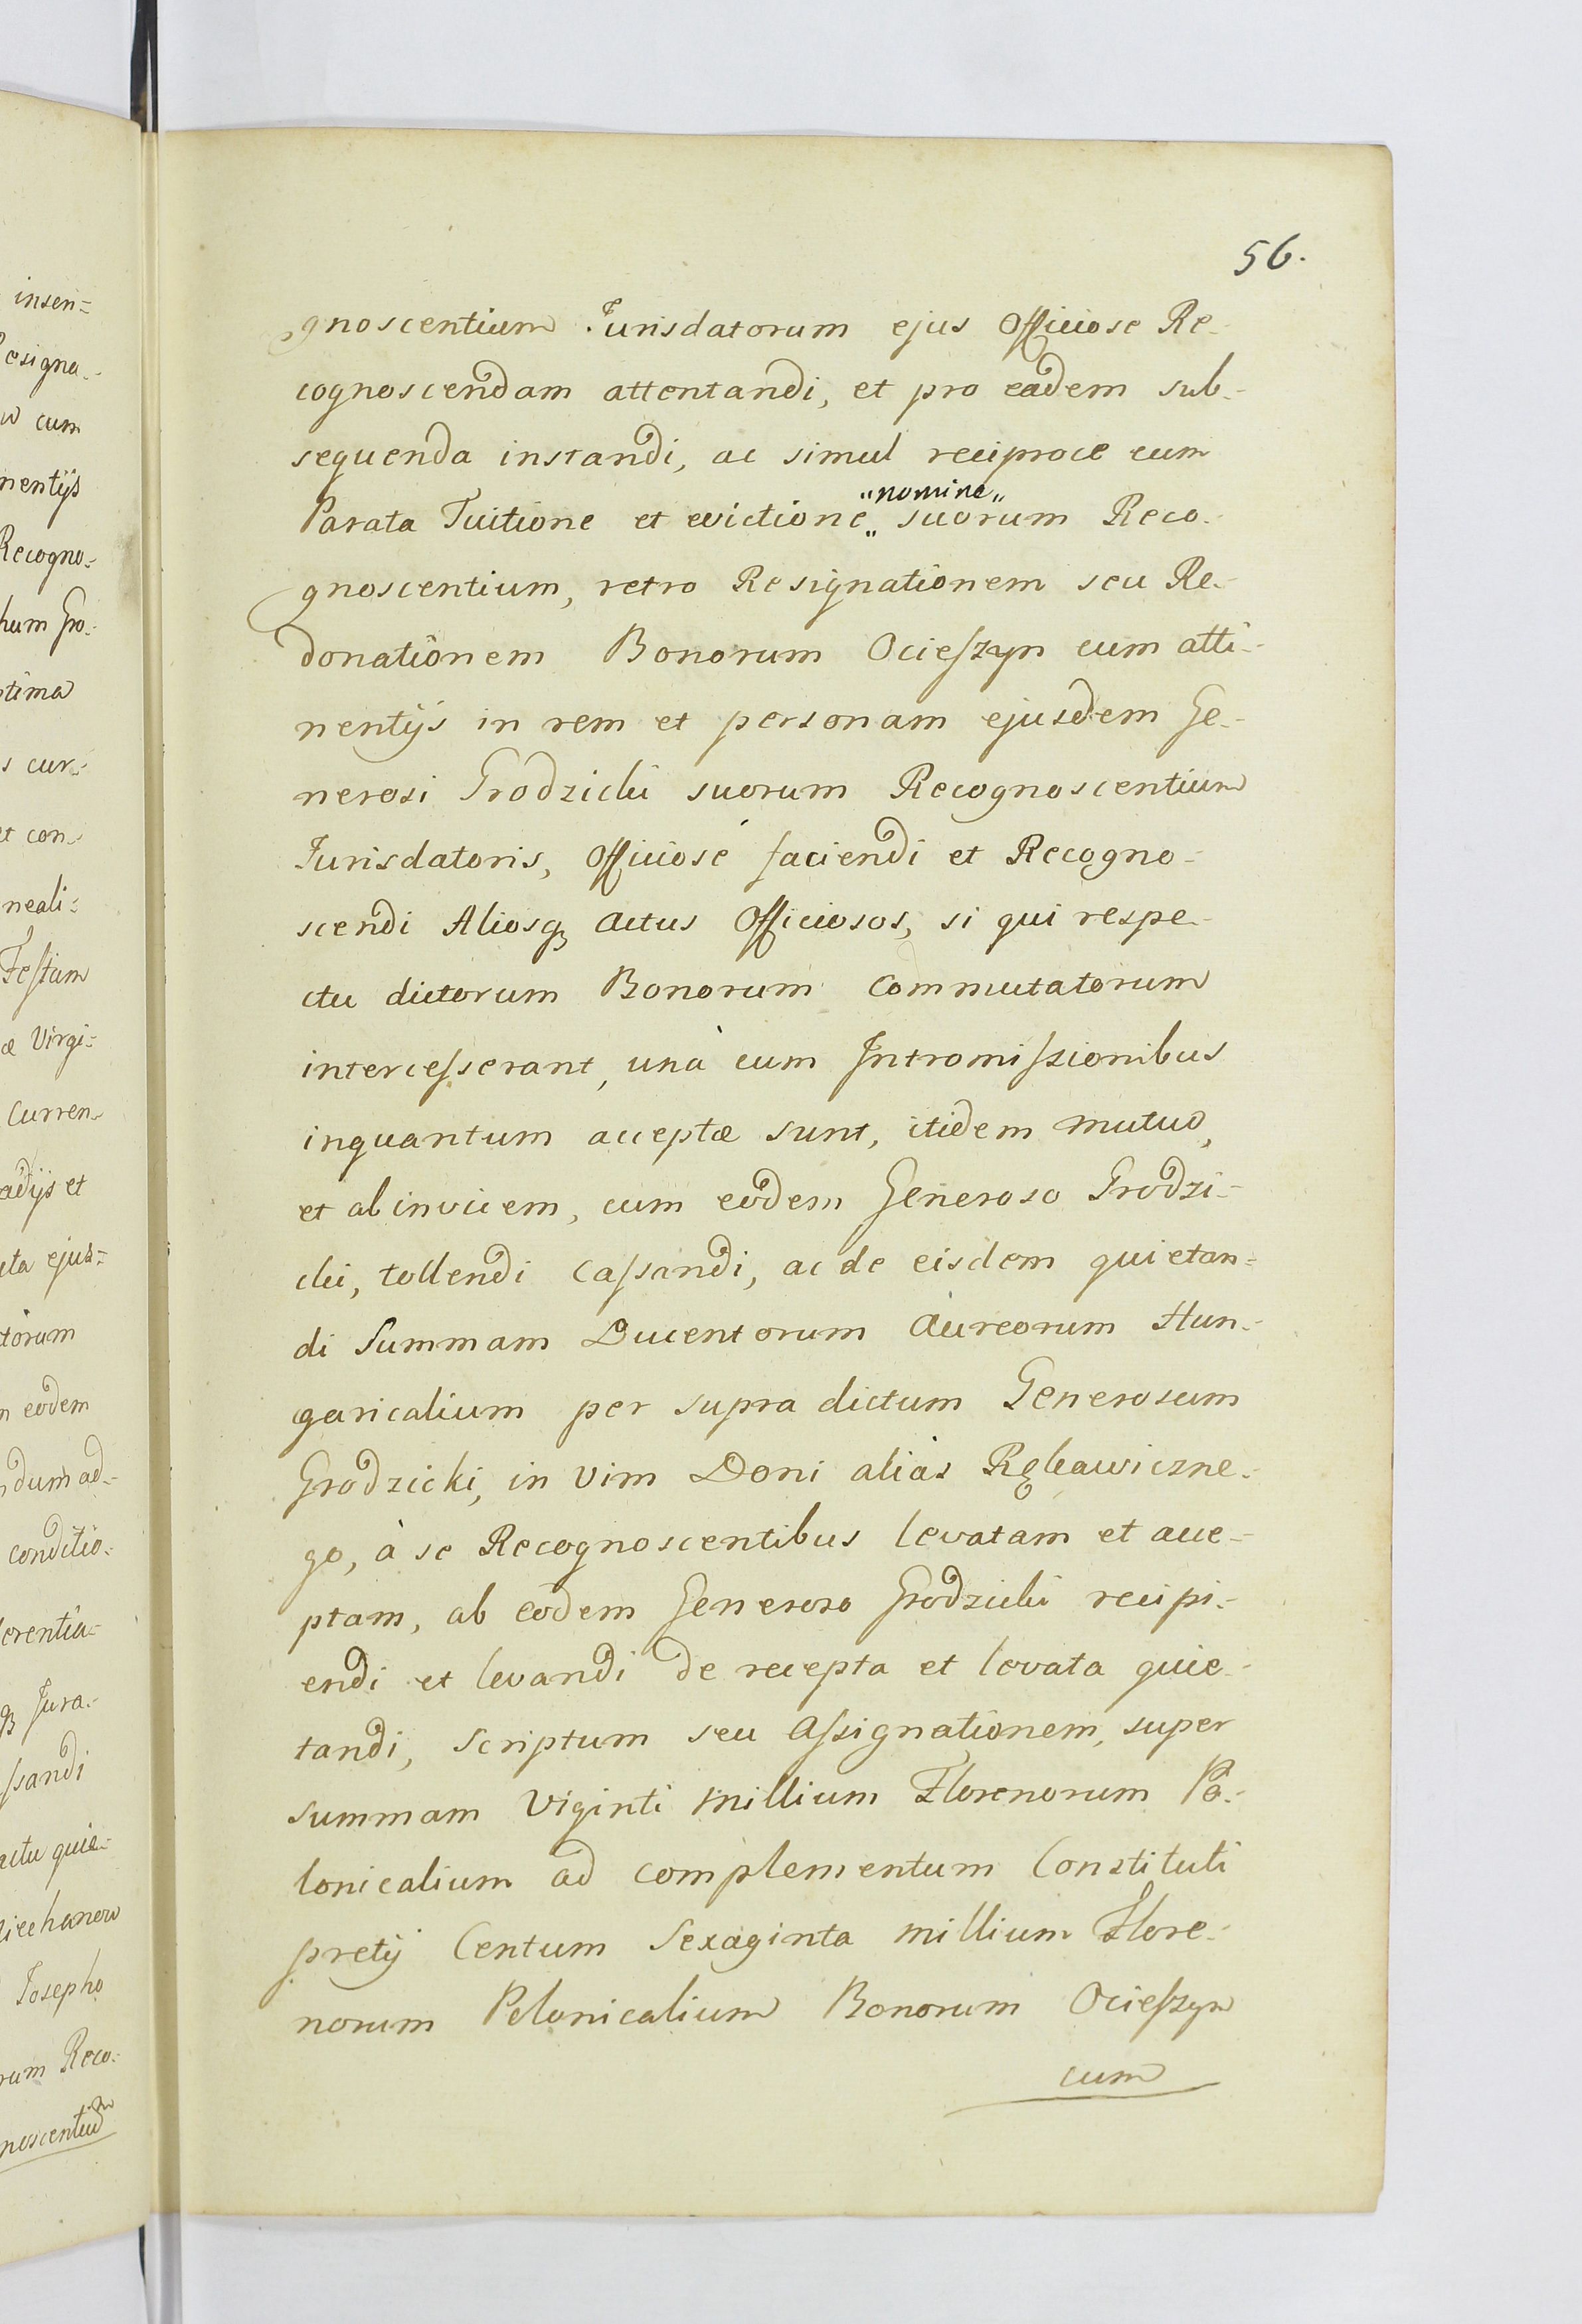 insen=
esigna=
w cum
nentijs
Recogno=
hum Gro=
tima
s cur=
et con=
neali=
Festum
æ Virgi=
Curren=
adijs et
cta ejus=
torum
n eodem
dum ad=
conditio=
erentia=
Jura=
ssandi
actu quie=
iechanow
Josepho
rum Reco=
noscentium
56.
gnoscentium Jurisdatorum ejus Officiose Re-
cognoscendam attentandi, et pro eadem sub-
sequenda instandi, ac simul reciproce cum
"nomine"
Parata Tuitione et evictione„ suorum Reco-
gnoscentium, retro Resignationem seu Re-
donationem Bonorum Ocieszyn cum atti-
nentijs in rem et personam ejusdem Ge-
nerosi Grodzicki suorum Recognoscentium
Jurisdatoris, Officiosé faciendi et Recogno-
scendi Aliosq₃ Actus Officiosos, si qui respe-
ctu dictorum Bonorum Commutatorum
intercesserant, unà cum Intromissionibus
inquantum acceptæ sunt, itidem mutuo,
et abinvicem, cum eodem Generoso Grodzi-
cki, tollendi Cassandi, ac de eisdem quietan=
di Summam Ducentorum Aureorum Hun-
garicalium per supra dictum Generosum
Grodzicki, in vim Doni aliàs Rękawiczne-
go, à se Recognoscentibus levatam et acce-
ptam, ab eodem Generoso Grodzicki recipi-
endi et levandi de recepta et levata quie-
tandi, Scriptum seu Assignationem, super
summam Viginti Millium Florenorum Po-
lonicalium ad complementum Constituti
pretij Centum Sexaginta millium Flore-
norum Polonicalium Bonorum Ocieszyn
cum